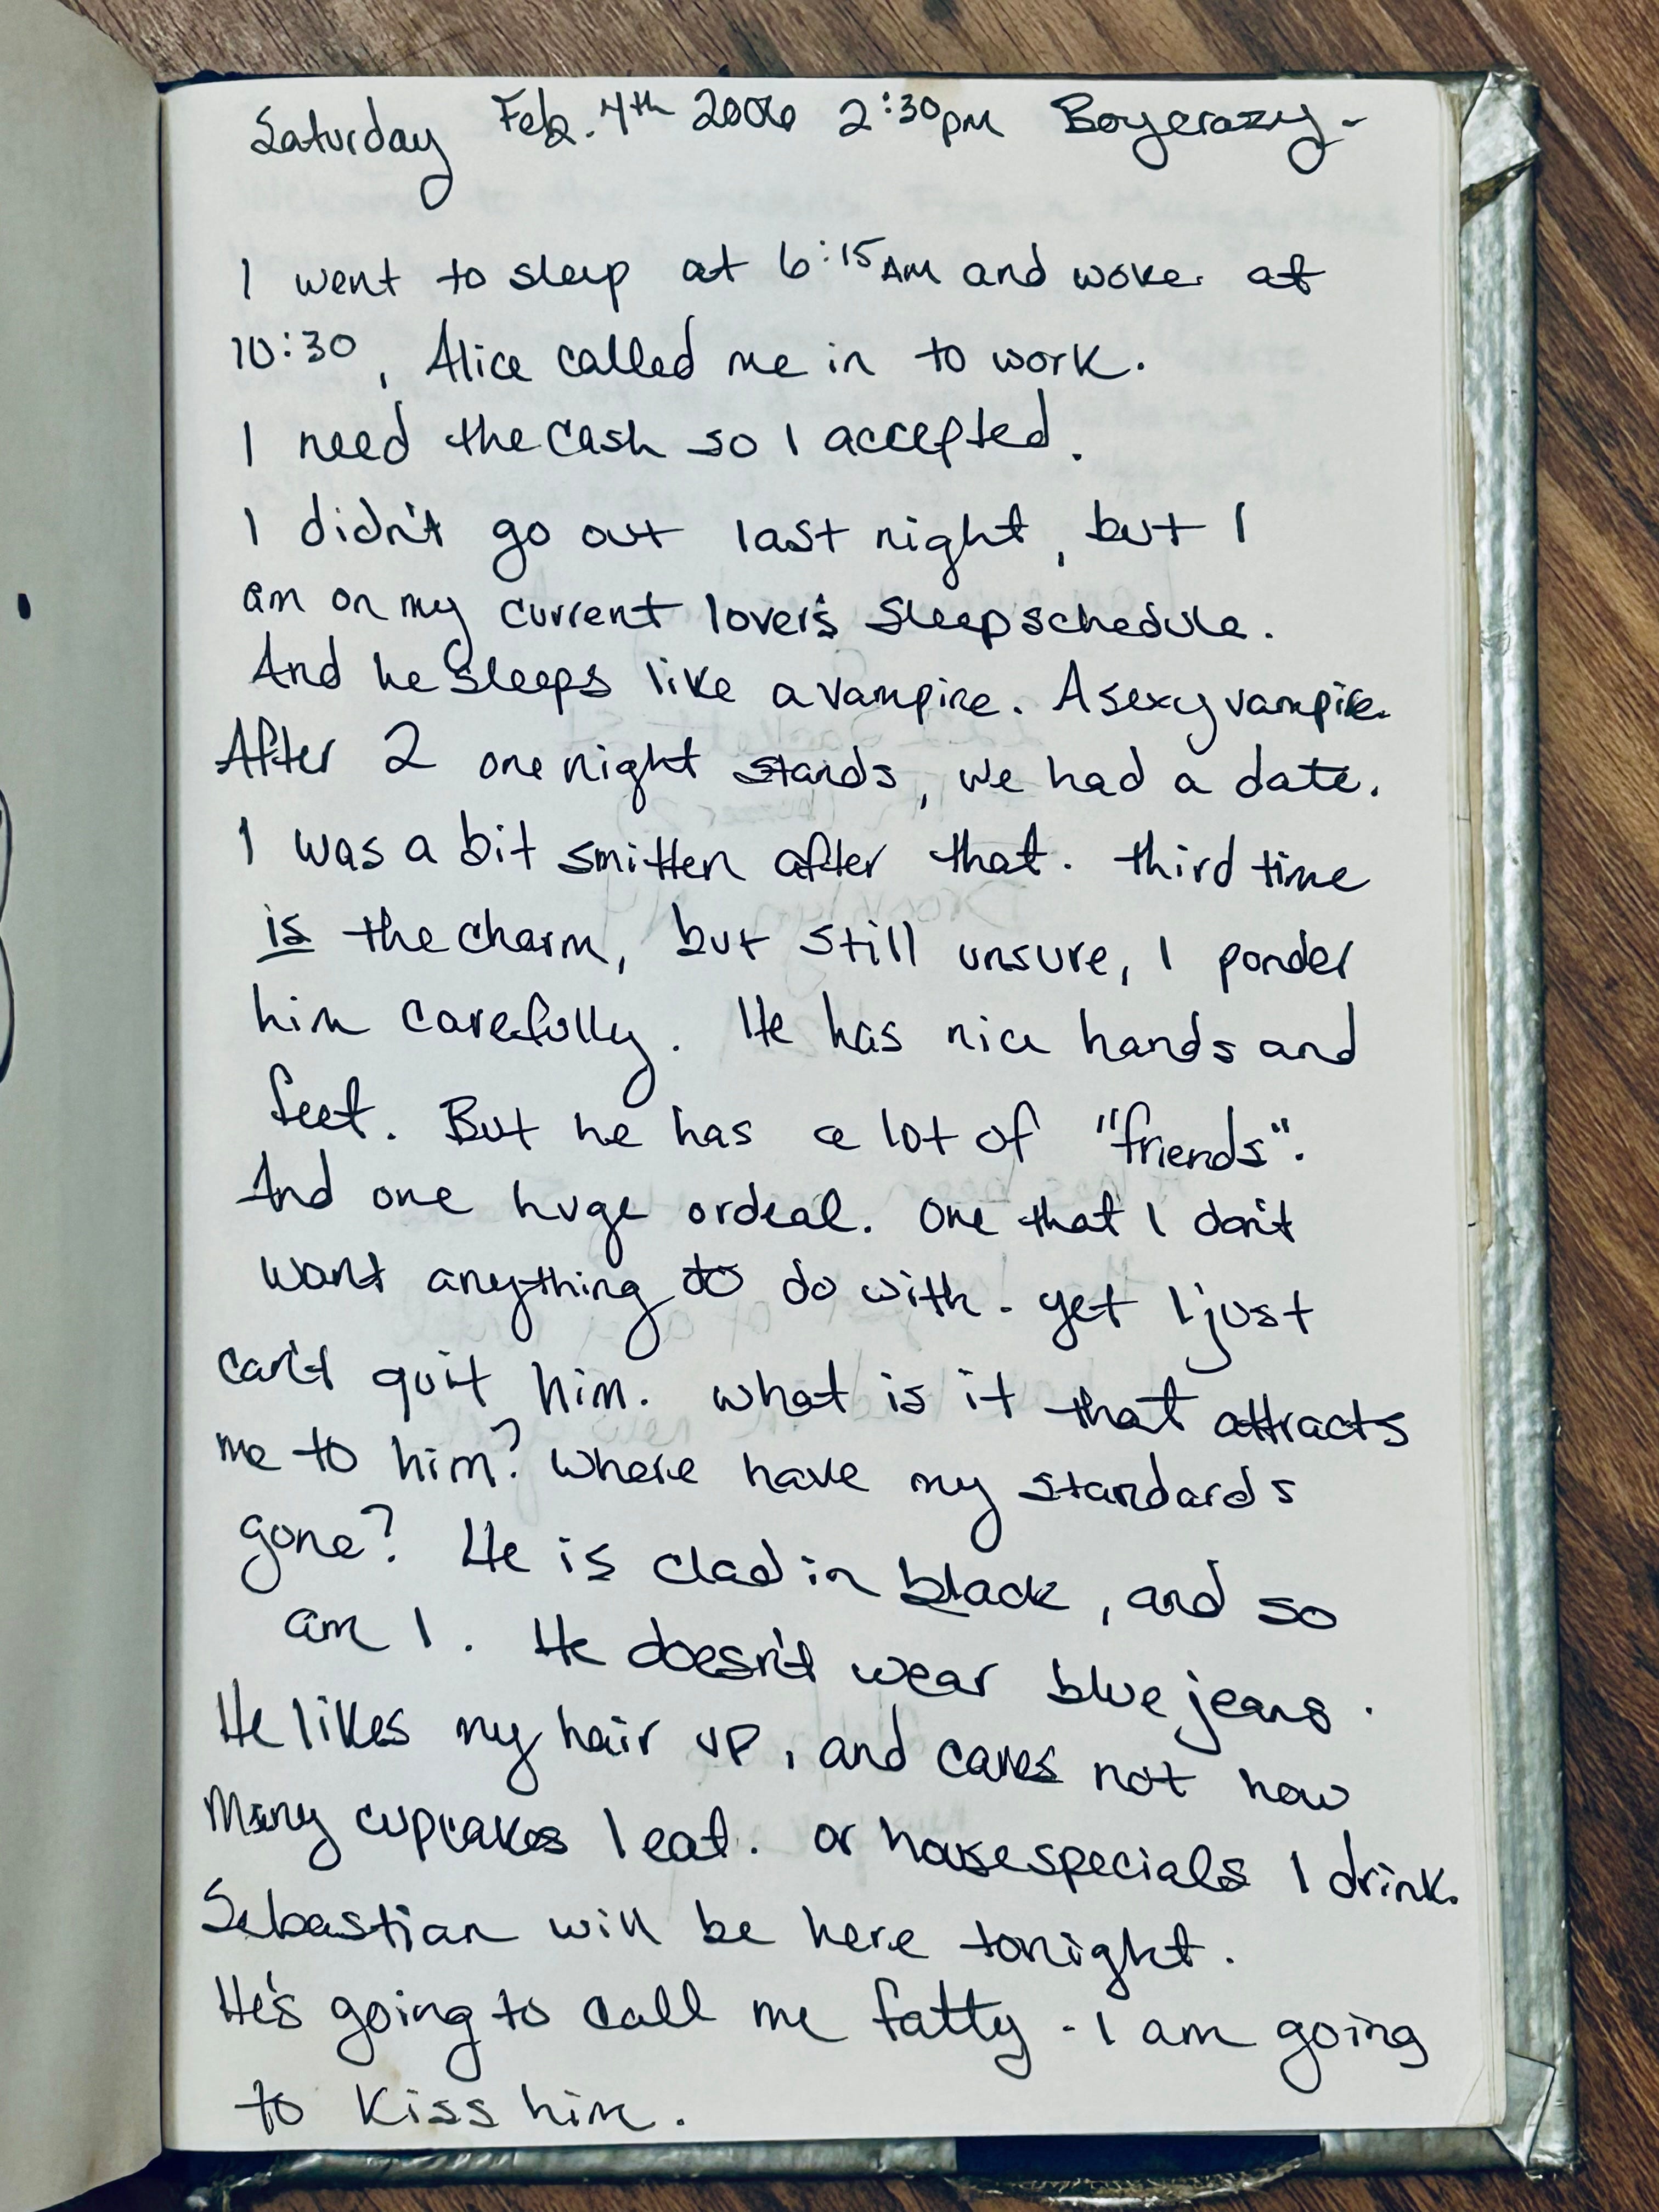 Saturday Feb. 4th 2006 2:30pm Boycrazy-
I went to sleep at 6:15AM and woke at
10:30, Alice called me in to work.
I need the cash so I accepted.
I didn't go out last night, but I
am on my current lover's sleepschedule.
And he sleeps like a vampire. A sexy vampire.
After 2 one night stands, we had a date.
I was a bit smitten after that. third time
is the charm, but still unsure, I ponder
him carefully. He has nice hands and
feet. But he has a lot of "friends".
And one huge ordeal. One that I don't
want anything to do with. yet I just
can't quit him. what is it that attracts
me to him? Where have my standards
gone? He is clad in black, and so
am I. He doesn't wear blue jeans.
He likes my hair up, and cares not how
Many cupcakes I eat. or house specials I drink.
Sebastian will be here tonight.
He's going to call me fatty - I am going
to kiss him.